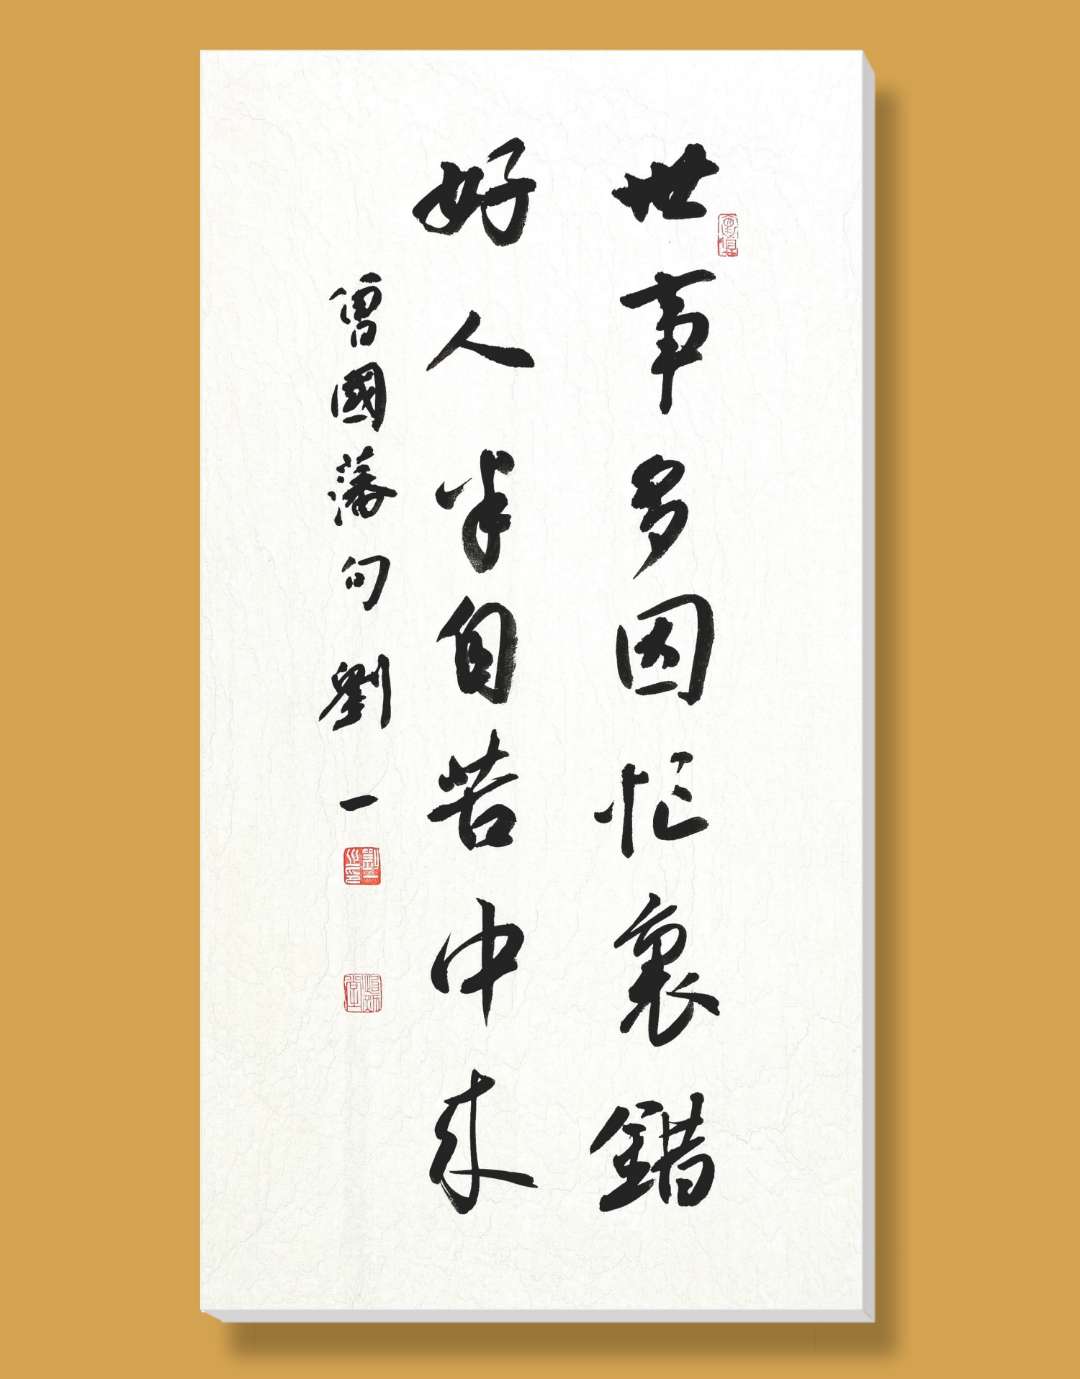 世事多因忙裏錯
好人半自苦中来
曾國藩句 劉一